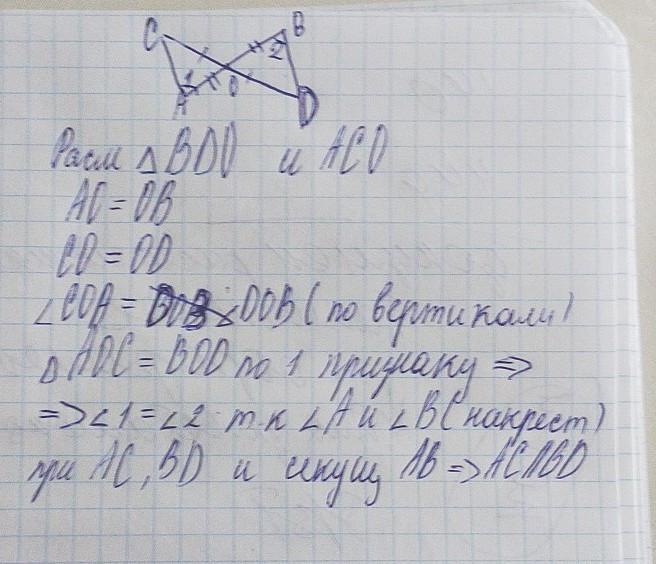 C B
1 2
A O D
Расм △ BDO и ACO
AO = OB
CO = OD
∠COA = ∠DOB ( по вертикали)
△ AOC = BOD по 1 признаку =>
=> ∠1 = ∠2 т.к ∠A и ∠B ( накрест)
при AC, BD и секущ AB => AC || BD